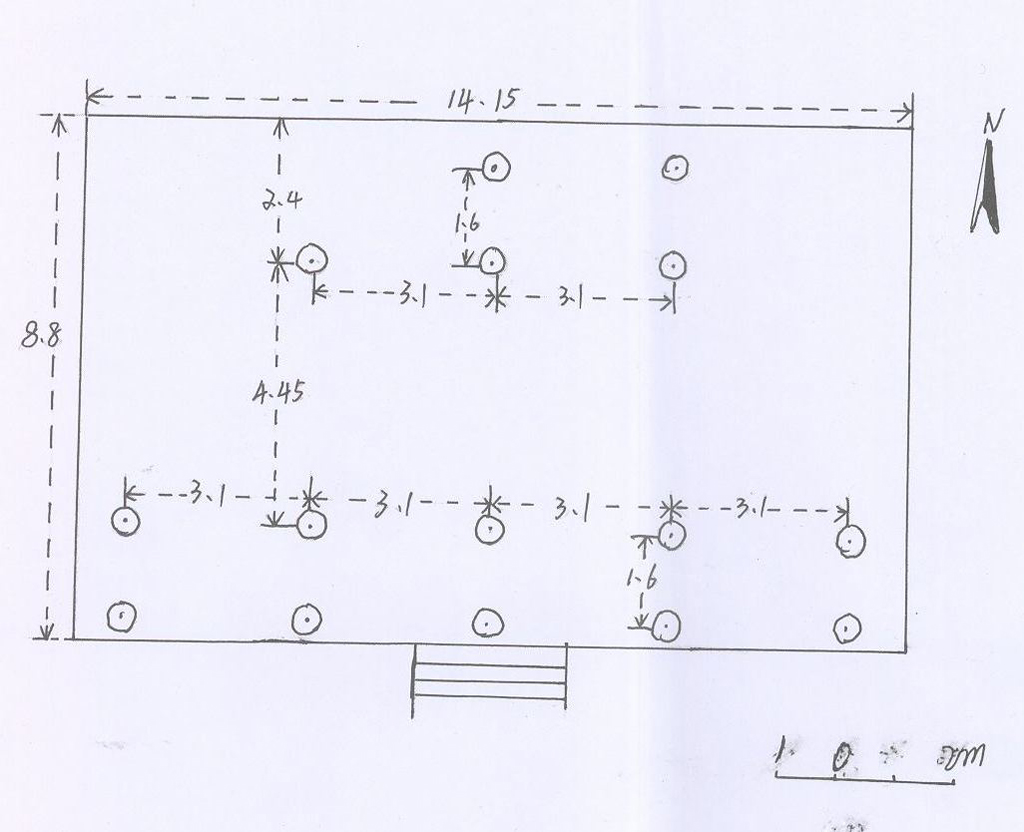 14.15
N
2.4
1.6
3.1
3.1
8.8
4.45
3.1
3.1
3.1
3.1
1.6
1 0 2M